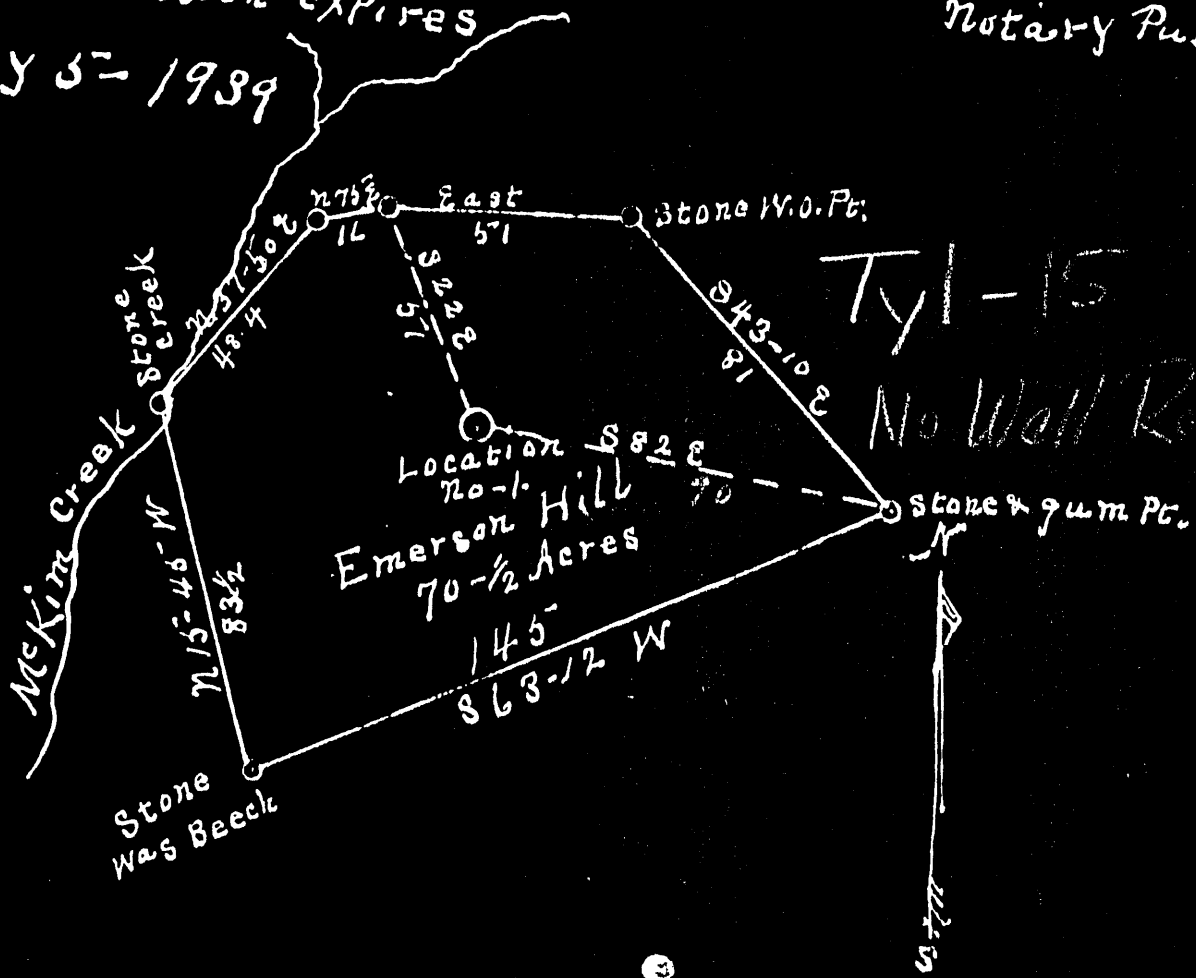 expires
Notary Pu
y 5- 1939
N 75 E
16
East
51
Stone W.O. Pt.
N 37-50 E
48.4
Stone
Creek
S 22 E
51
S 43-10 E
81
Tyl-15
No Well
McKim Creek
Location
No-1.
S 82 E
70
Emerson Hill
70-1/2 Acres
Stone & gum Pt.
N
N 15-45-W
83 1/2
145
S 63-12 W
Stone
was Beech
S